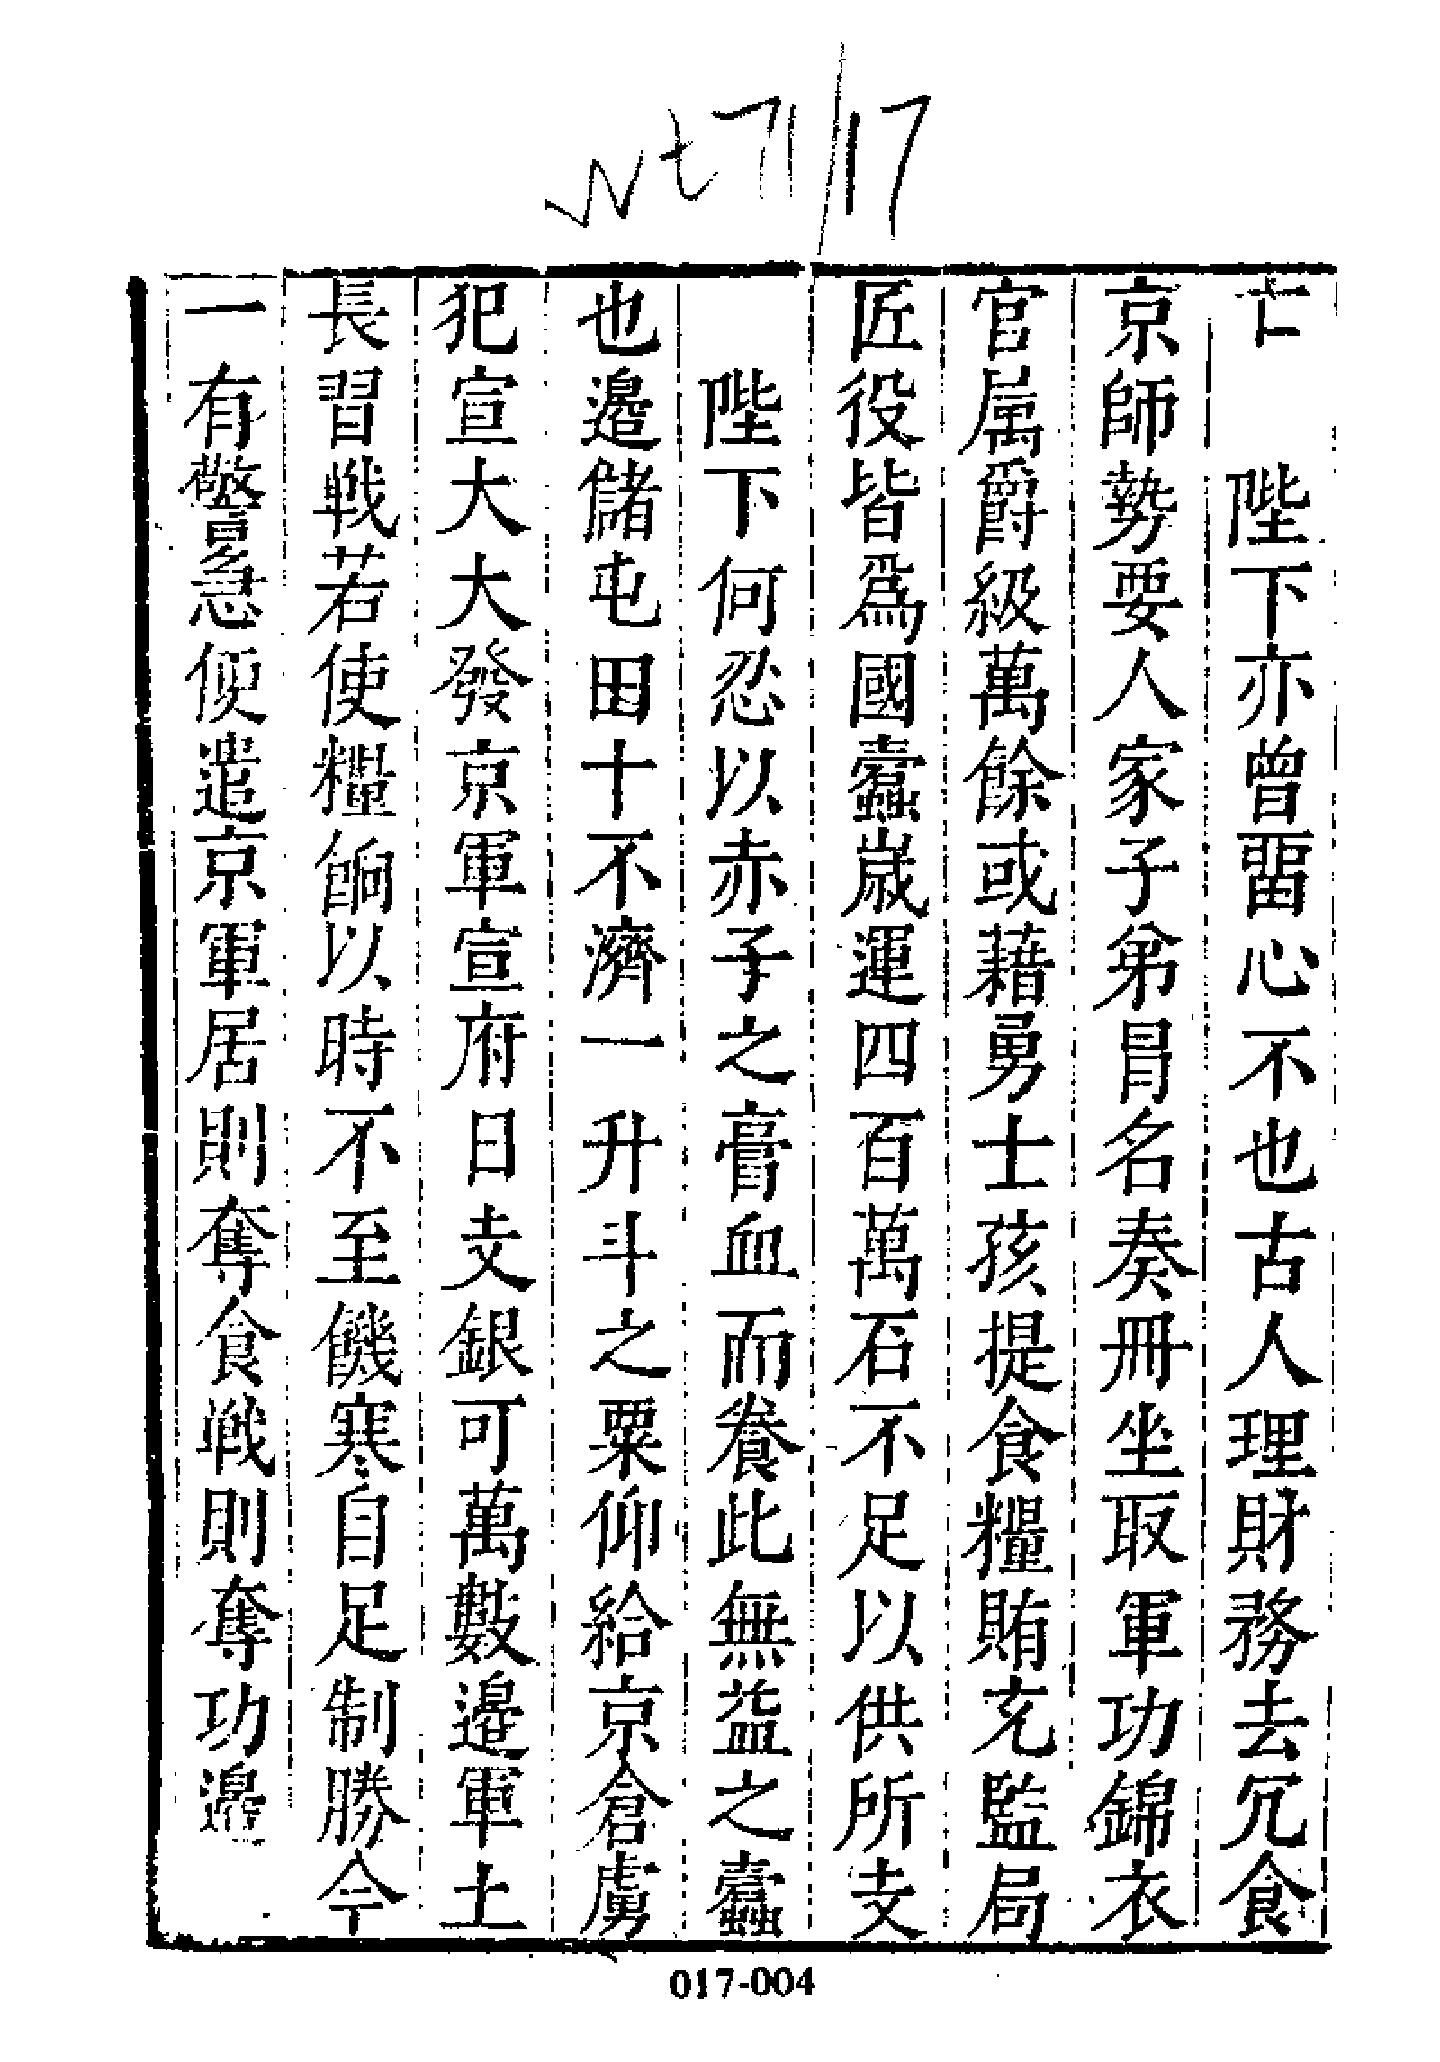 Nt71/17
陛下亦曾畱心不也古人理財務去冗食
京師勢要人家子弟冐名奏冊坐取軍功錦衣
官属爵級萬餘或藉勇士孩提食糧賄充監局
匠役皆爲國蠹嵗運四百萬石不足以供所支
陛下何忍以赤子之膏血而養此無益之蠹
也邉儲屯田十不濟一升斗之粟仰給京倉虜
犯宣大大發京軍宣府日支銀可萬數邉軍土
長習戰若使糧餉以時不至饑寒自足制勝今
一有警急便遣京軍居則奪食戰則奪功邉
017-004